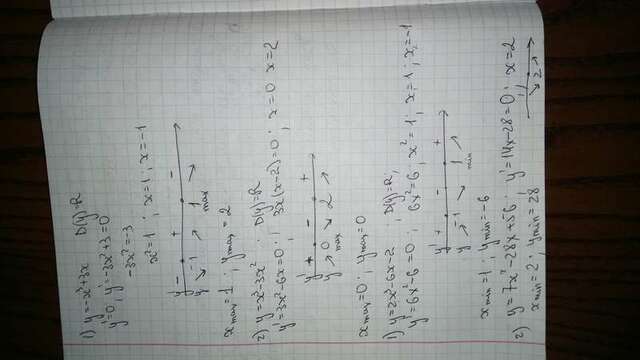 1) y=-x³+3x D(y)=R
y'=0; y'=-3x²+3=0
-3x²=-3
x²=1; x=1; x=-1
y' - -1 + 1 -
y max
x max=1; y max=2
2) y=x³-3x² D(y)=R
y'=3x²-6x=0; 3x(x-2)=0; x=0 x=2
y' + 0 - 2 +
y max
x max=0; y max=0
1) y=2x³-6x-2 D(y)=R;
y'=6x²-6=0; 6x²=6; x²=1; x=1; x₂=-1
y' + -1 - 1 +
y min
x min=1; y min=-6
2) y=7x²-28x+56; y'=14x-28=0; x=2
x min=2; y min=28
2